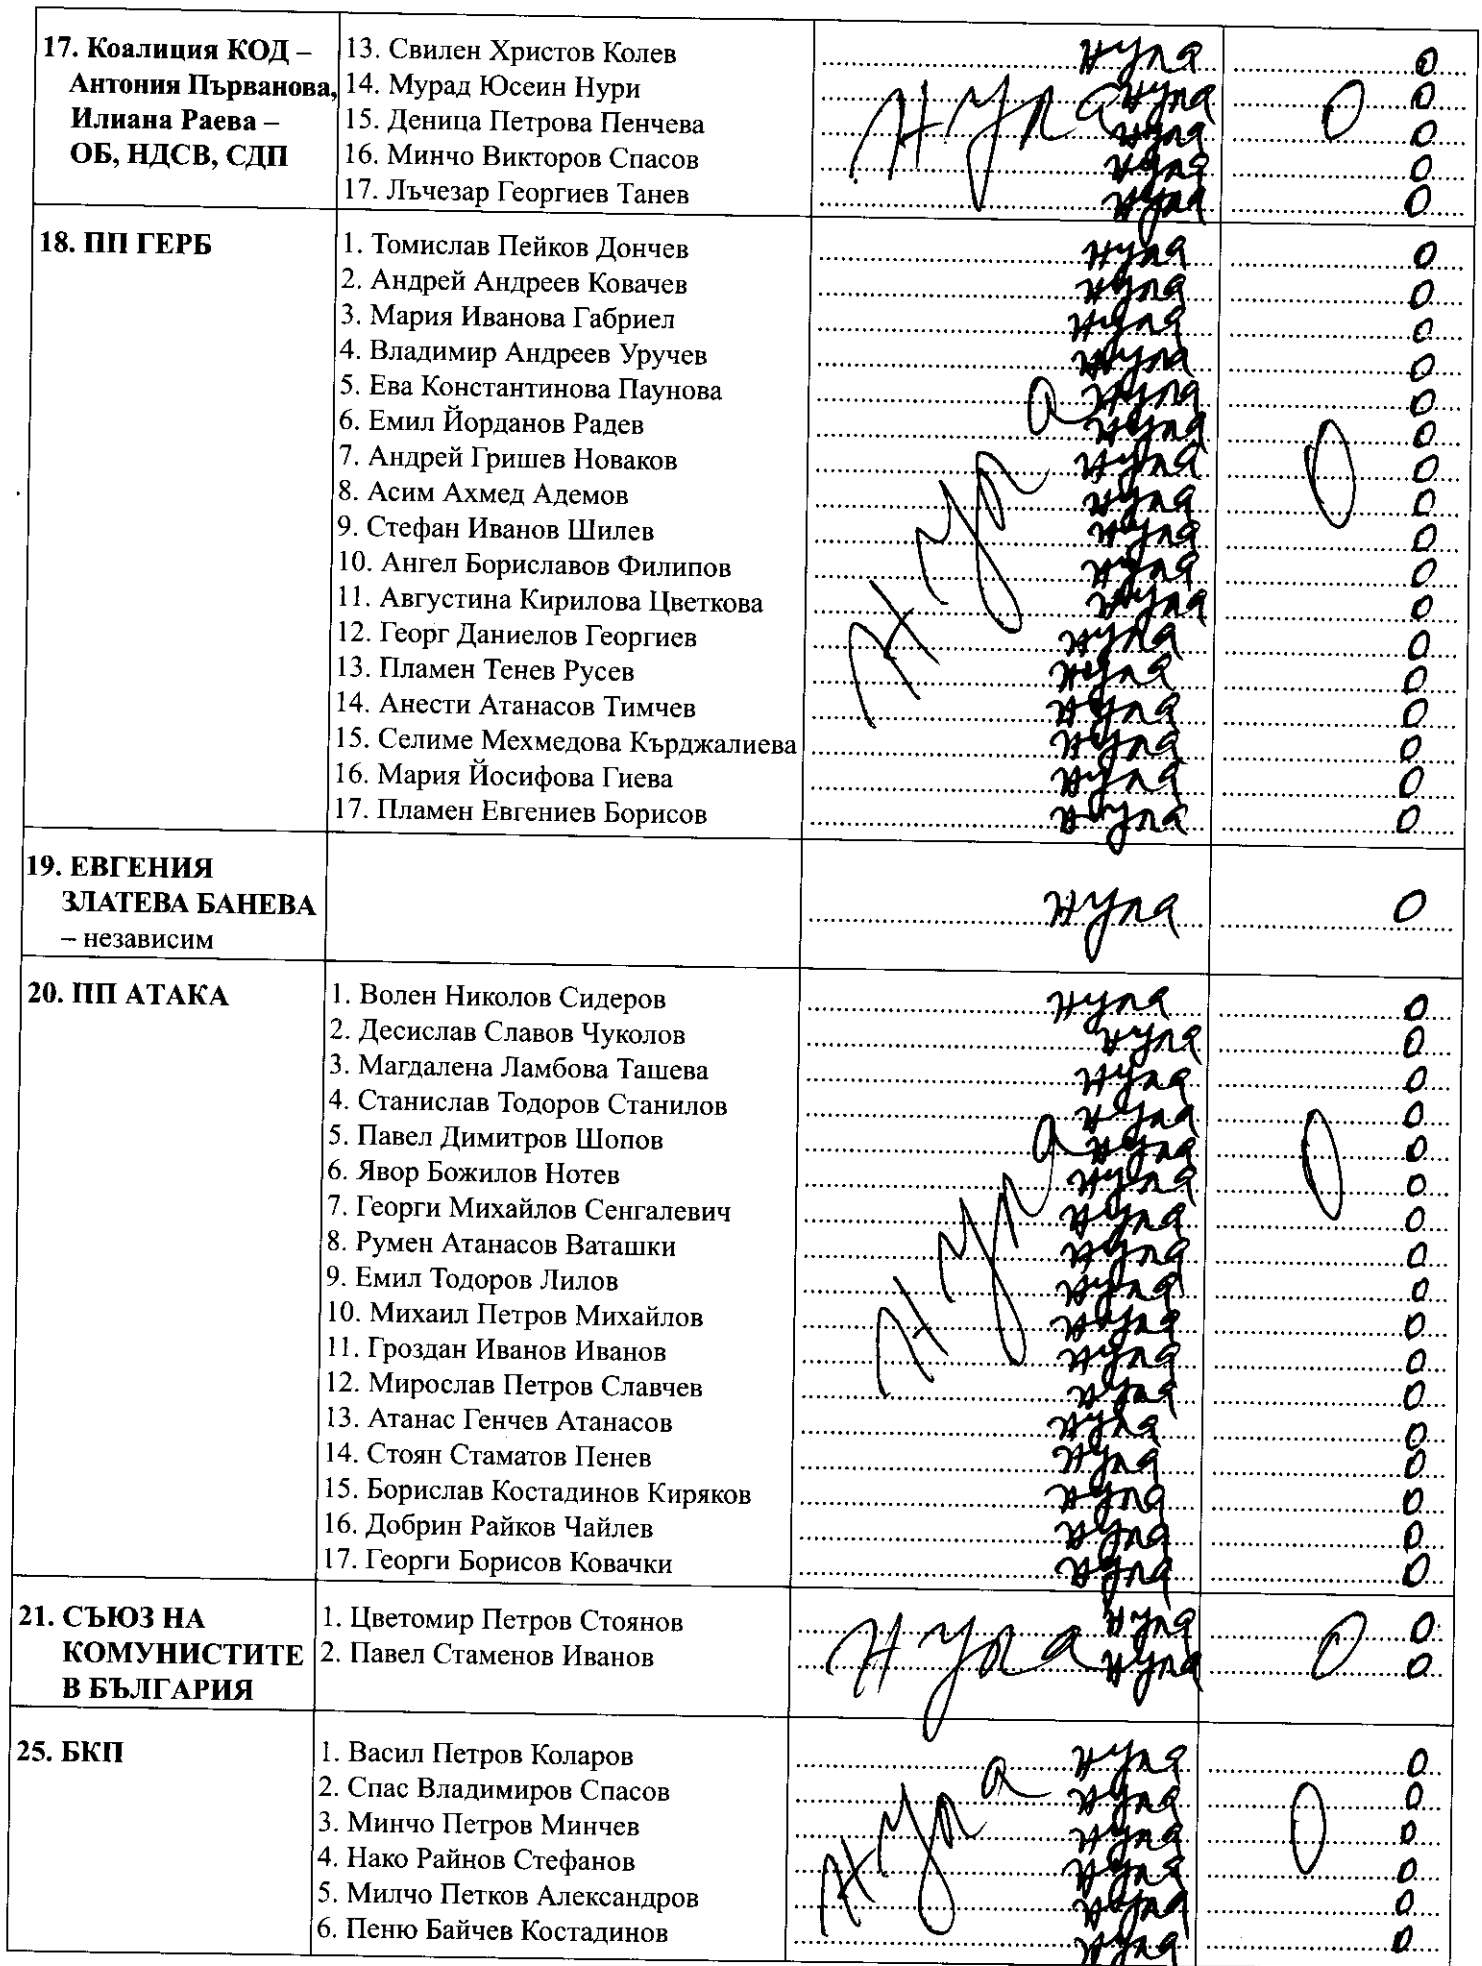 17. Коалиция КОД –
Антония Първанова,
Илиана Раева –
ОБ, НДСВ, СДП
13. Свилен Христов Колев нула 0
14. Мурад Юсеин Нури нула 0
15. Деница Петрова Пенчева нула 0
16. Минчо Викторов Спасов нула 0
17. Лъчезар Георгиев Танев нула 0
нула 0
18. ПП ГЕРБ
1. Томислав Пейков Дончев нула 0
2. Андрей Андреев Ковачев нула 0
3. Мария Иванова Габриел нула 0
4. Владимир Андреев Уручев нула 0
5. Ева Константинова Паунова нула 0
6. Емил Йорданов Радев нула 0
7. Андрей Гришев Новаков нула 0
8. Асим Ахмед Адемов нула 0
9. Стефан Иванов Шилев нула 0
10. Ангел Бориславов Филипов нула 0
11. Августина Кирилова Цветкова нула 0
12. Георг Даниелов Георгиев нула 0
13. Пламен Тенев Русев нула 0
14. Анести Атанасов Тимчев нула 0
15. Селиме Мехмедова Кърджалиева нула 0
16. Мария Йосифова Гиева нула 0
17. Пламен Евгениев Борисов нула 0
нула 0
19. ЕВГЕНИЯ
ЗЛАТЕВА БАНЕВА
– независим
нула 0
20. ПП АТАКА
1. Волен Николов Сидеров нула 0
2. Десислав Славов Чуколов нула 0
3. Магдалена Ламбова Ташева нула 0
4. Станислав Тодоров Станилов нула 0
5. Павел Димитров Шопов нула 0
6. Явор Божилов Нотев нула 0
7. Георги Михайлов Сенгалевич нула 0
8. Румен Атанасов Ваташки нула 0
9. Емил Тодоров Лилов нула 0
10. Михаил Петров Михайлов нула 0
11. Гроздан Иванов Иванов нула 0
12. Мирослав Петров Славчев нула 0
13. Атанас Генчев Атанасов нула 0
14. Стоян Стаматов Пенев нула 0
15. Борислав Костадинов Киряков нула 0
16. Добрин Райков Чайлев нула 0
17. Георги Борисов Ковачки нула 0
нула 0
21. СЪЮЗ НА
КОМУНИСТИТЕ
В БЪЛГАРИЯ
1. Цветомир Петров Стоянов нула 0
2. Павел Стаменов Иванов нула 0
нула 0
25. БКП
1. Васил Петров Коларов нула 0
2. Спас Владимиров Спасов нула 0
3. Минчо Петров Минчев нула 0
4. Нако Райнов Стефанов нула 0
5. Милчо Петков Александров нула 0
6. Пеню Байчев Костадинов нула 0
нула 0